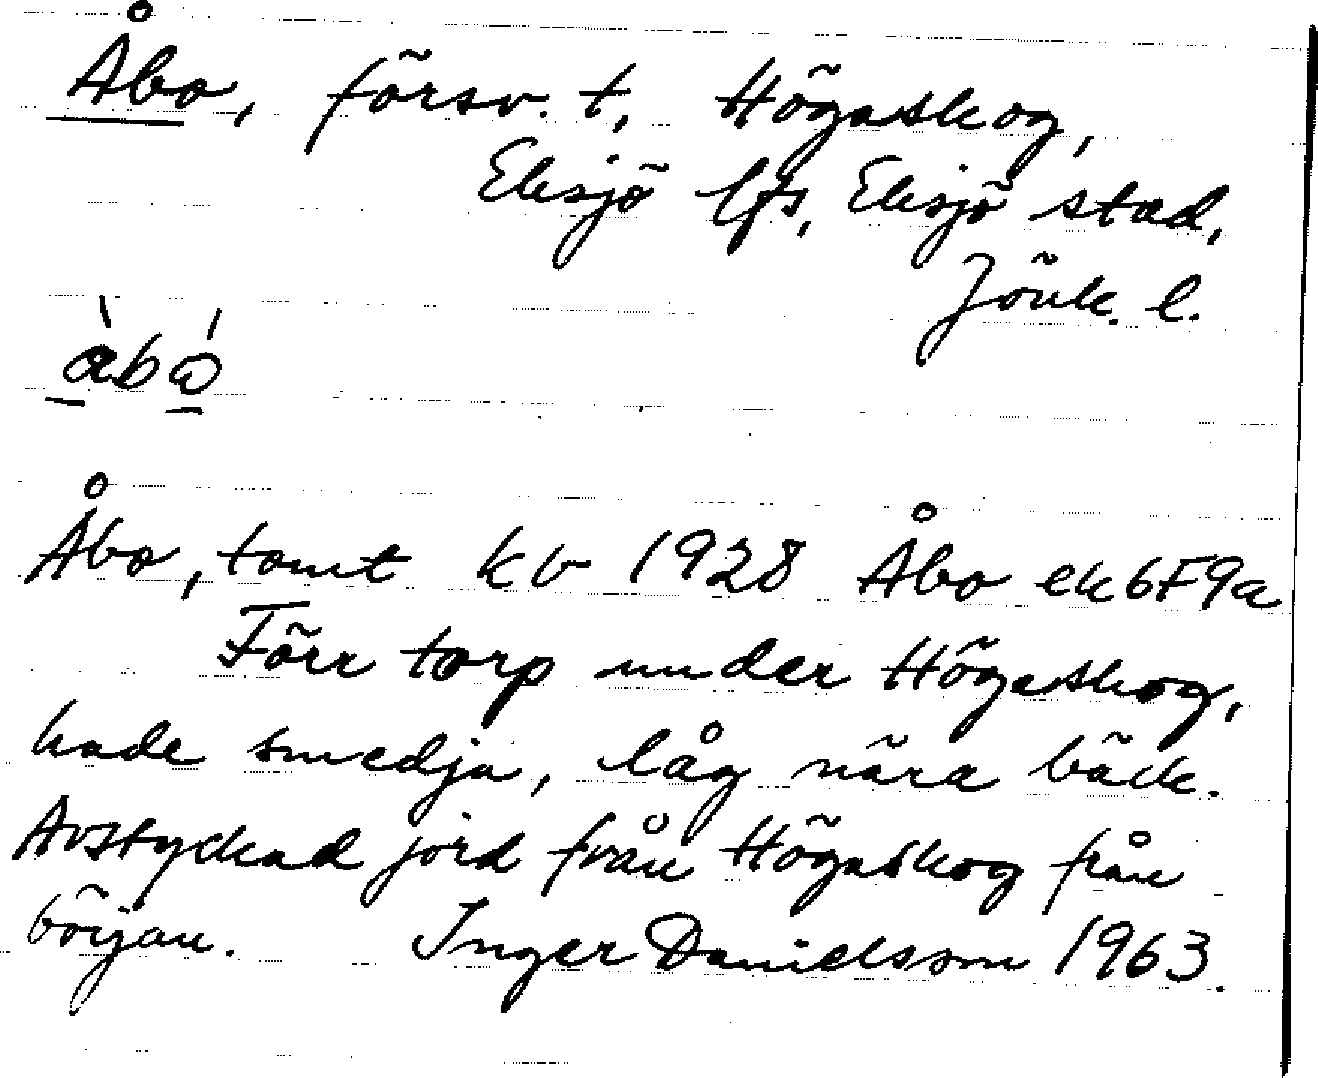 Åbo, försv. t, Högaskog,
Eksjö lfs, Eksjö stad,
Jönk. l.
Åbo, tomt kv 1928 Åbo ek6F9a
Förr torp under Högaskog,
hade smedja, låg nära bäck.
Avstyckad jord från Högaskog från
början. Inger Danielsson 1963.